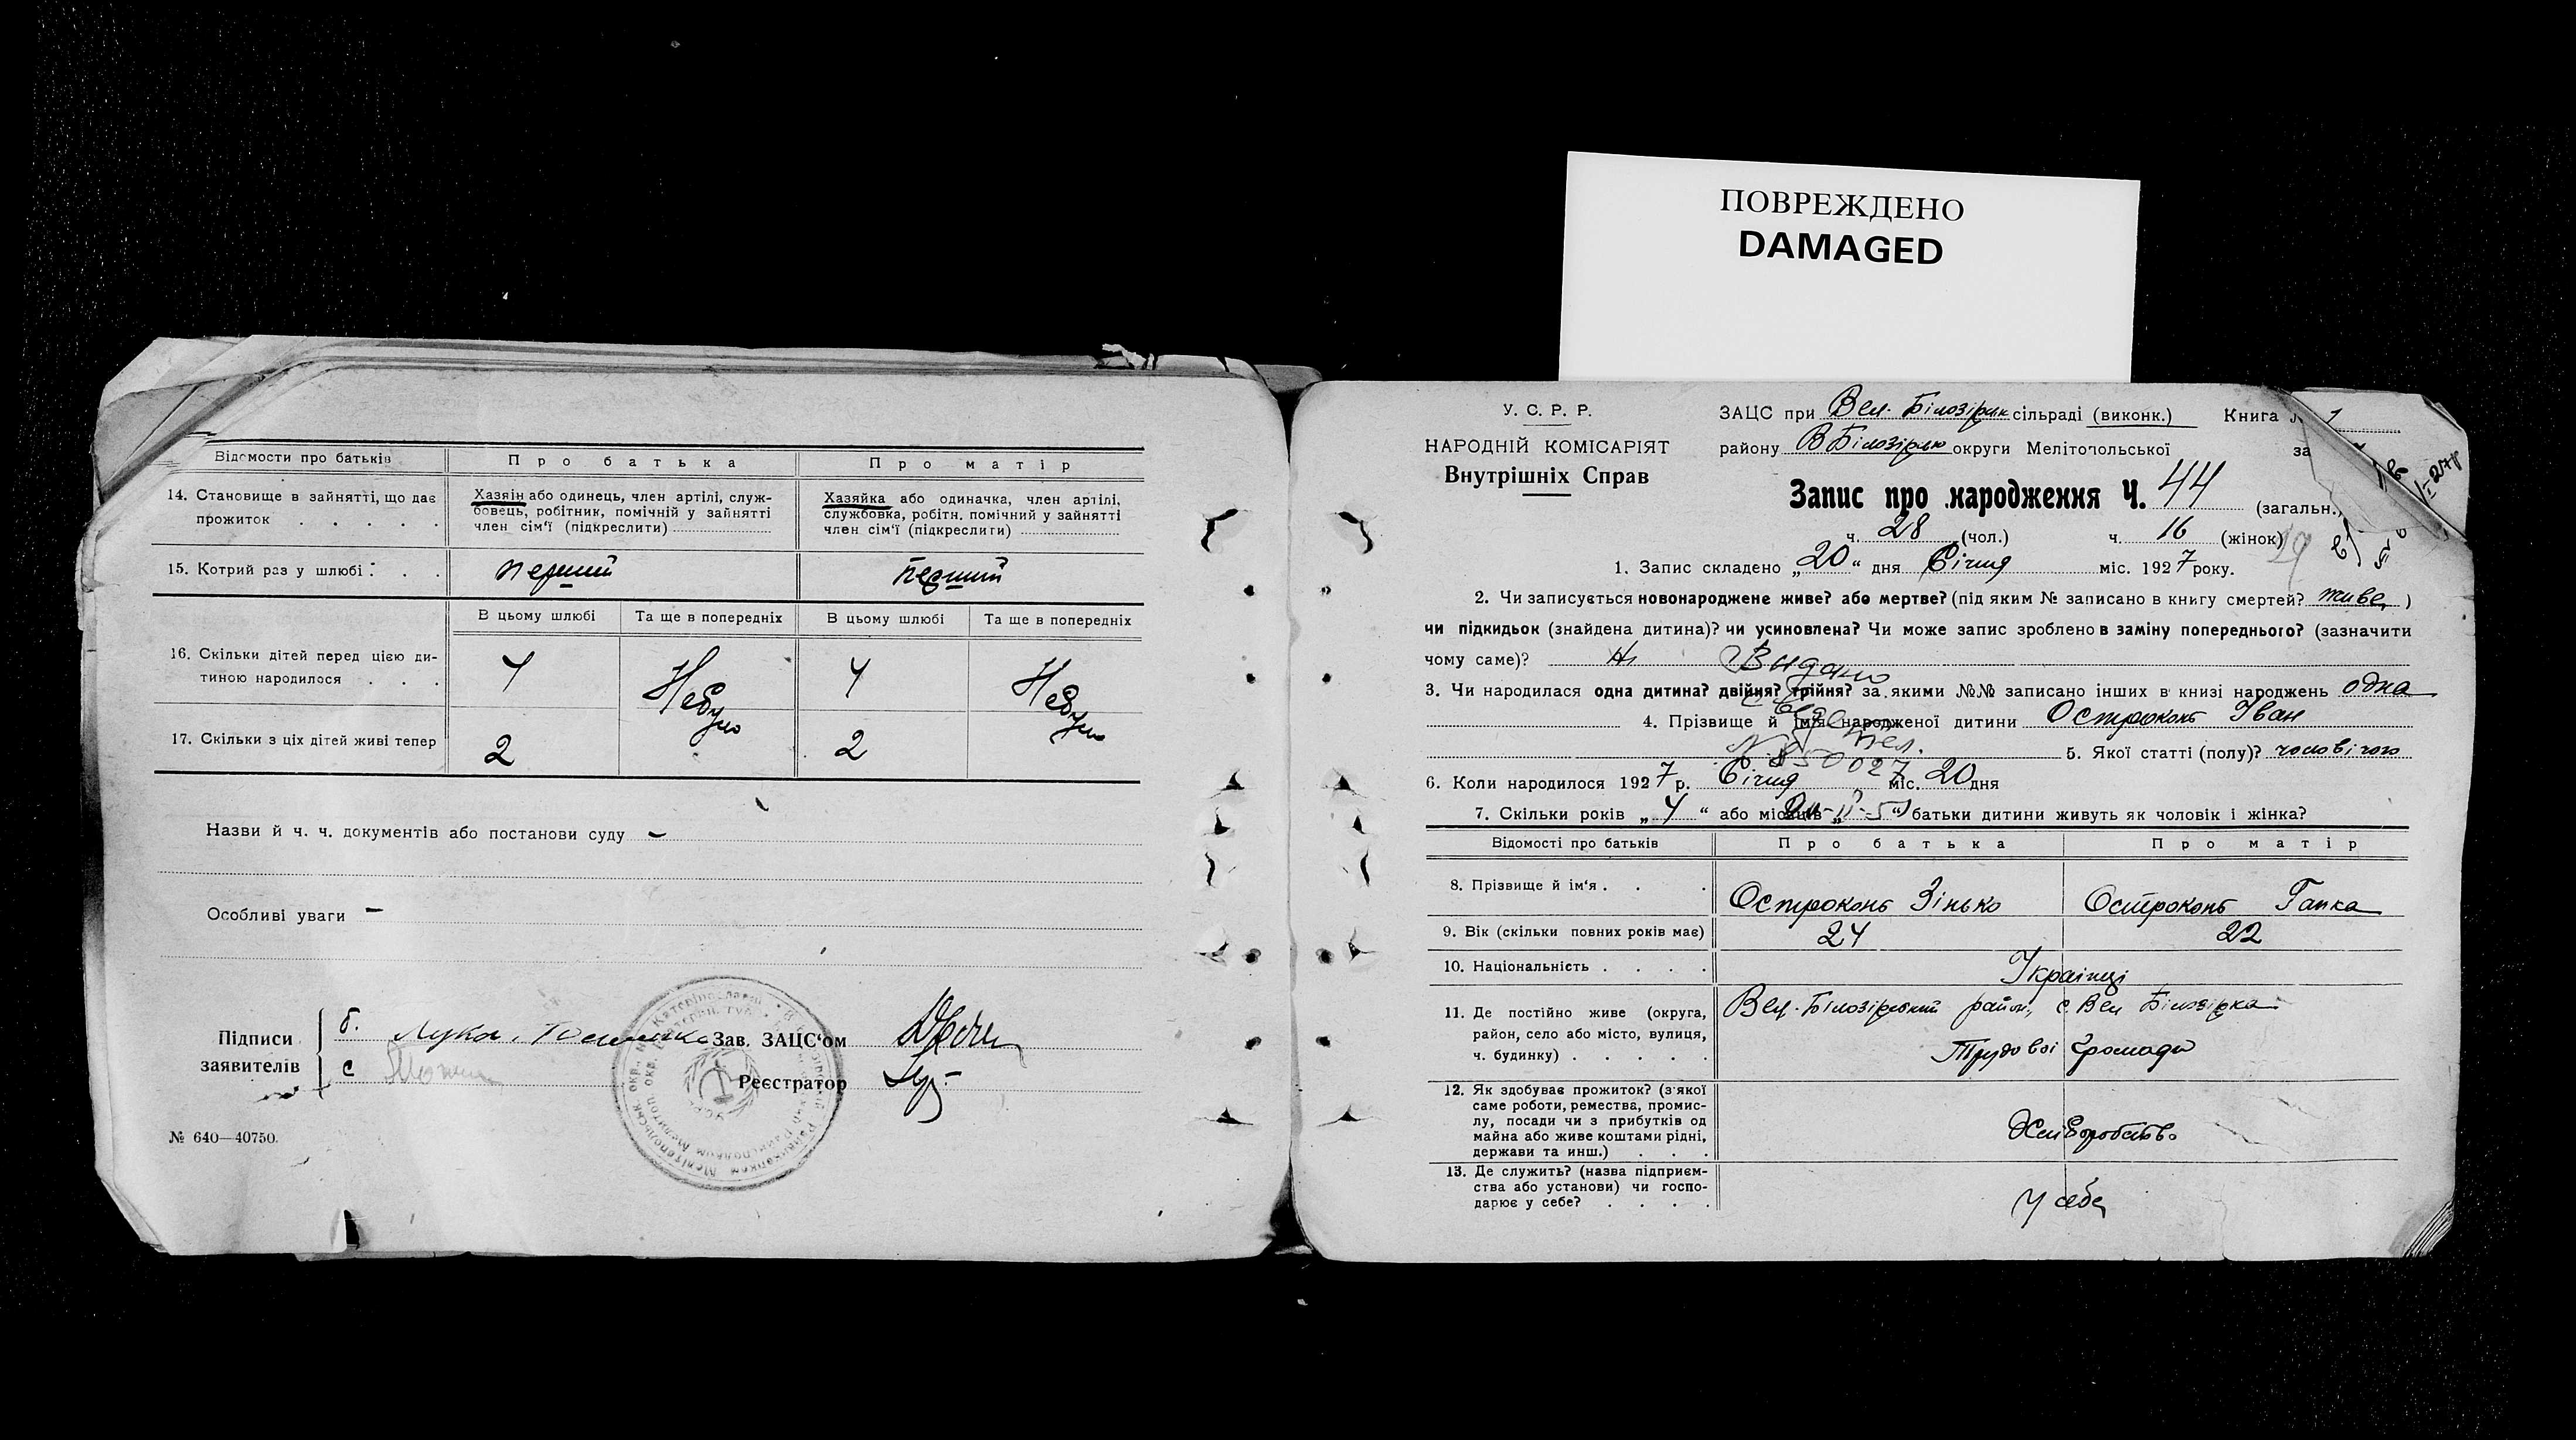 ПОВРЕЖДЕНО
DAMAGED
Відомости про батьків
Про батька
Про матір
14. Становище в зайнятті, що дає
прожиток . . . . .
Хазяін або одинець, член артілі, служ-
бовець, робітник, помічній у зайнятті
член сім'ї (підкреслити)
Хазяйка або одиначка, член артілі,
службовка, робітн. помічний у зайнятті
член сім'ї (підкреслити)
15. Котрий раз у шлюбі . . .
перший
перший
В цьому шлюбі
Та ще в попередніх
В цьому шлюбі
Та ще в попередніх
16. Скільки дітей перед цією ди-
тиною народилося . . .
4
Небуло
4
Небуло
17. Скільки з ціх дітей живі тепер
2
2
Назви й ч. ч. документів або постанови суду –
Особливі уваги –
Підписи
заявителів
б.
Лука
с
Зав. ЗАЦС'ом
Реєстратор
№ 640—40750.
У. С. Р. Р.
НАРОДНІЙ КОМІСАРІЯТ
Внутрішніх Справ
ЗАЦС при Вел. Білозірск сільраді (виконк.) Книга № 1
району В Білозірки округи Мелітопольської за
Запис про народження Ч. 44 (загальн.
ч. 28 (чол.) ч. 16 (жінок)
1. Запис складено „20" дня Січня міс. 1927 року.
2. Чи записується новонароджене живе? або мертве? (під яким № записано в книгу смертей? живе)
чи підкидьок (знайдена дитина)? чи усиновлена? Чи може запис зроблено в заміну попереднього? (зазначити
чому саме)? Ні
Выдано
3. Чи народилася одна дитина? двійня? трійня? за якими №№ записано інших в книзі народжень одна
4. Прізвище й ім'я народженої дитини Остроконь Іван
5. Якої статті (полу)? чоловічого
6. Коли народилося 1927 р. Січня міс. 20 дня
7. Скільки років „4" або місяців „ " батьки дитини живуть як чоловік і жінка?
Відомості про батьків
Про батька
Про матір
8. Прізвище й ім'я . . .
Остроконь Зінько
Остроконь Гапка
9. Вік (скільки повних років має)
24
22
10. Національність . . . .
Українці
11. Де постійно живе (округа,
район, село або місто, вулиця,
ч. будинку) . . . . .
Вел. Білозірський район, с. Вел Білозірка
Трудової громади
12. Як здобуває прожиток? (з'якої
саме роботи, ремества, промис-
лу, посади чи з прибутків од
майна або живе коштами рідні,
держави та инш.) . . .
Хліборобство
13. Де служить? (назва підприєм-
ства або установи) чи госпо-
дарює у себе? . . . .
у себе